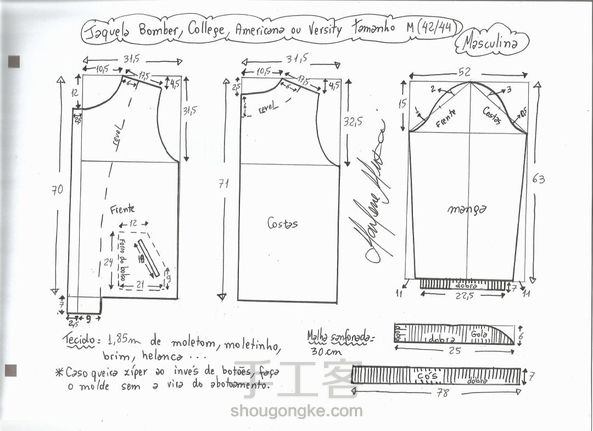 Jaqueta Bomber, College, Americana ou Versity tamanho M (42/44)
Masculina
31,5
10,5
17,5
4,5
12
6
revel
31,5
70
Frente
12
24
Forro do bolso
18
21
9
7
2,5
9
31,5
10,5
17,5
4,5
2,5
6
revel
32,5
71
Costas
52
15
2
3
Frente
Costas
manga
63
11
dobra
7
22,5
11
Tecido: 1,85m de moletom, moletinho,
brim, helanca ...
* Caso queira zíper ao invés de botões, faça
o molde sem a vita do abotoamento.
Malha sanfonada:
30cm
dobra
Gola
6
25
cós
dobra
7
78
手工客
shougongke.com